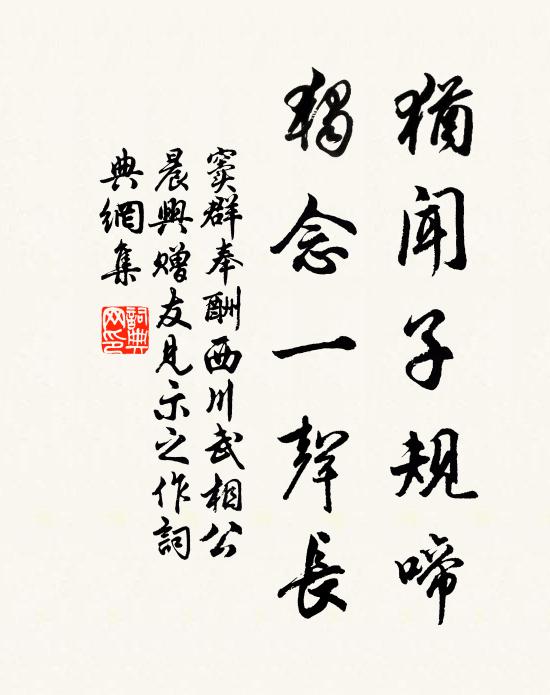 猶聞子規啼
獨念一聲長
竇群奉酬西川武相公
晨興贈友見示之作詞
典網集
詞典
网印